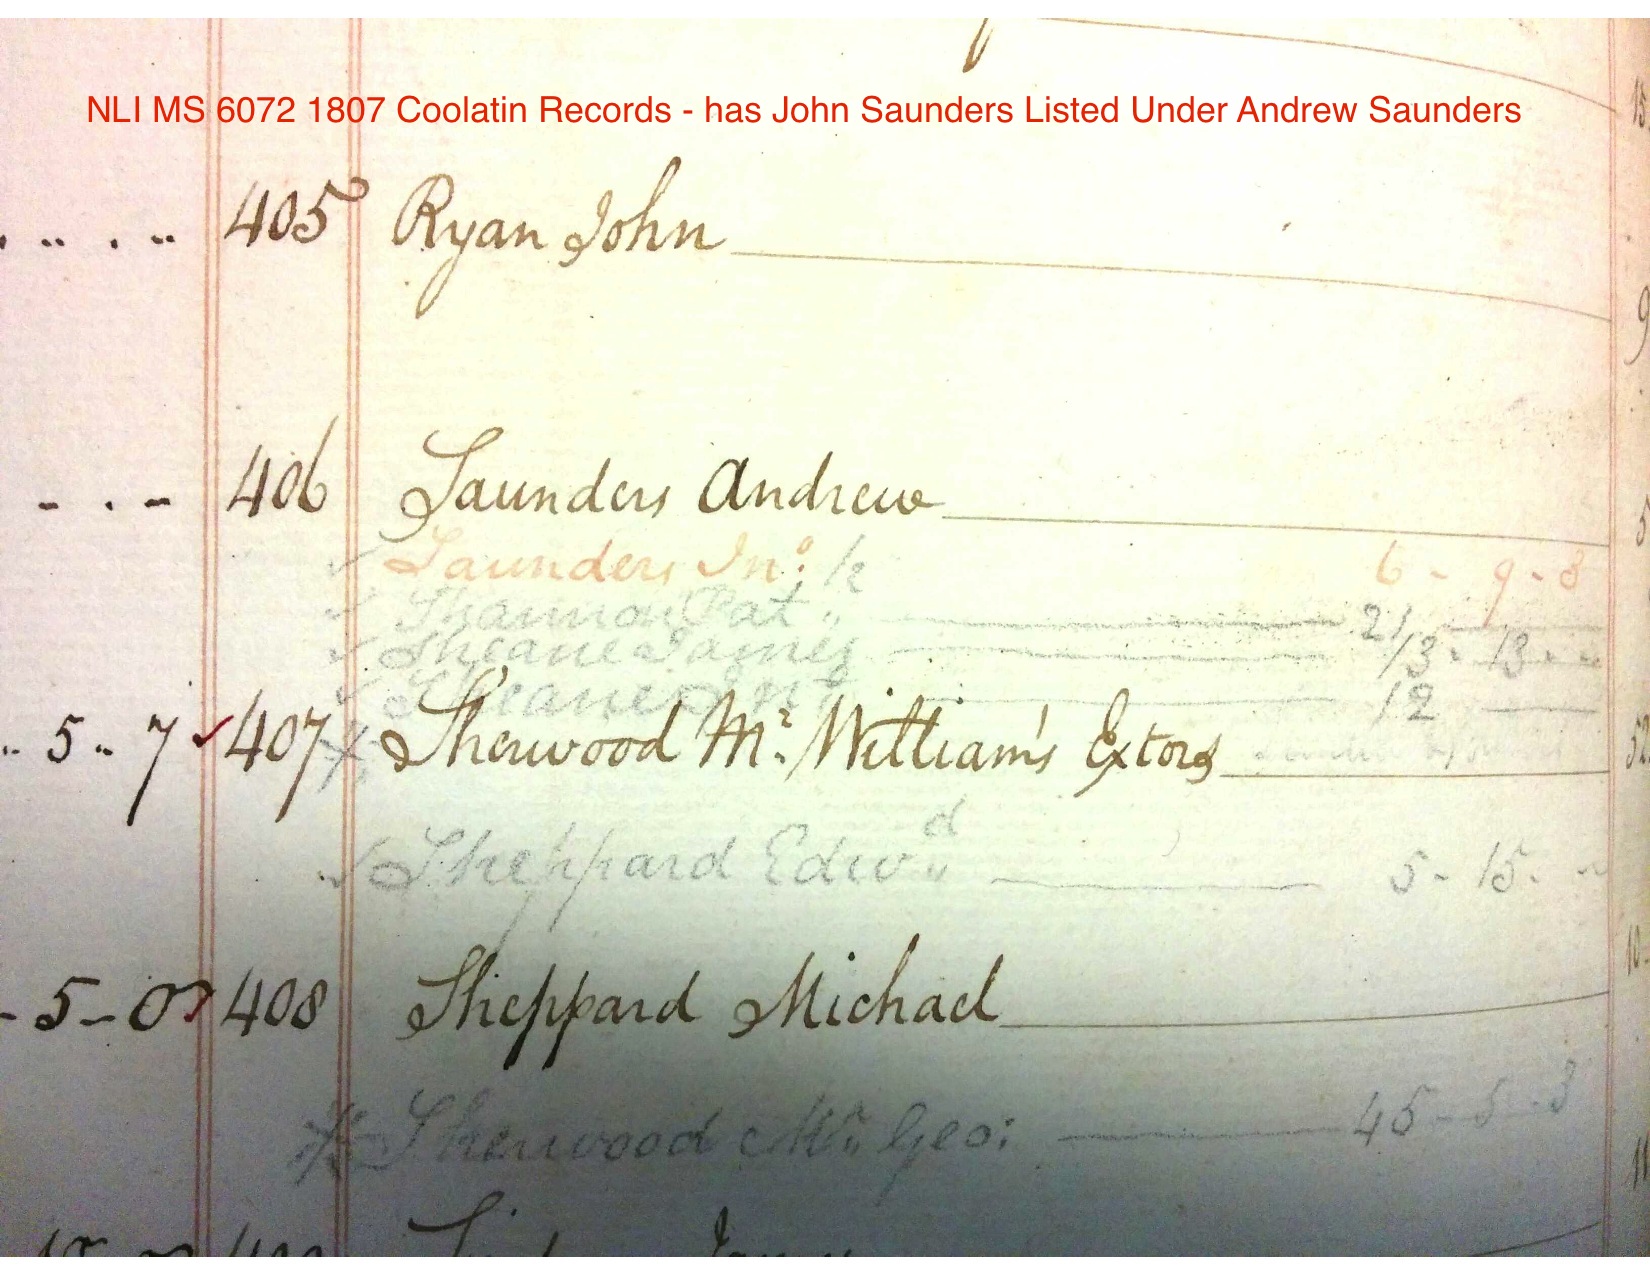 NLI MS 6072 1807 Coolatin Records - has John Saunders Listed Under Andrew Saunders
405 Ryan John
406 Saunders Andrew
Saunders Jno: 1/2 6 - 9 - 8
Shannon Pat 21
Sheane James 13 - 13
Sheane Jno 12
5 " 7 407 Sherwood Mr. William's Extors
Sheppard Edwd 5 - 15 -
- 5 - 0 408 Sheppard Michael
Sherwood Mr. Geo: 45 - 5 - 3